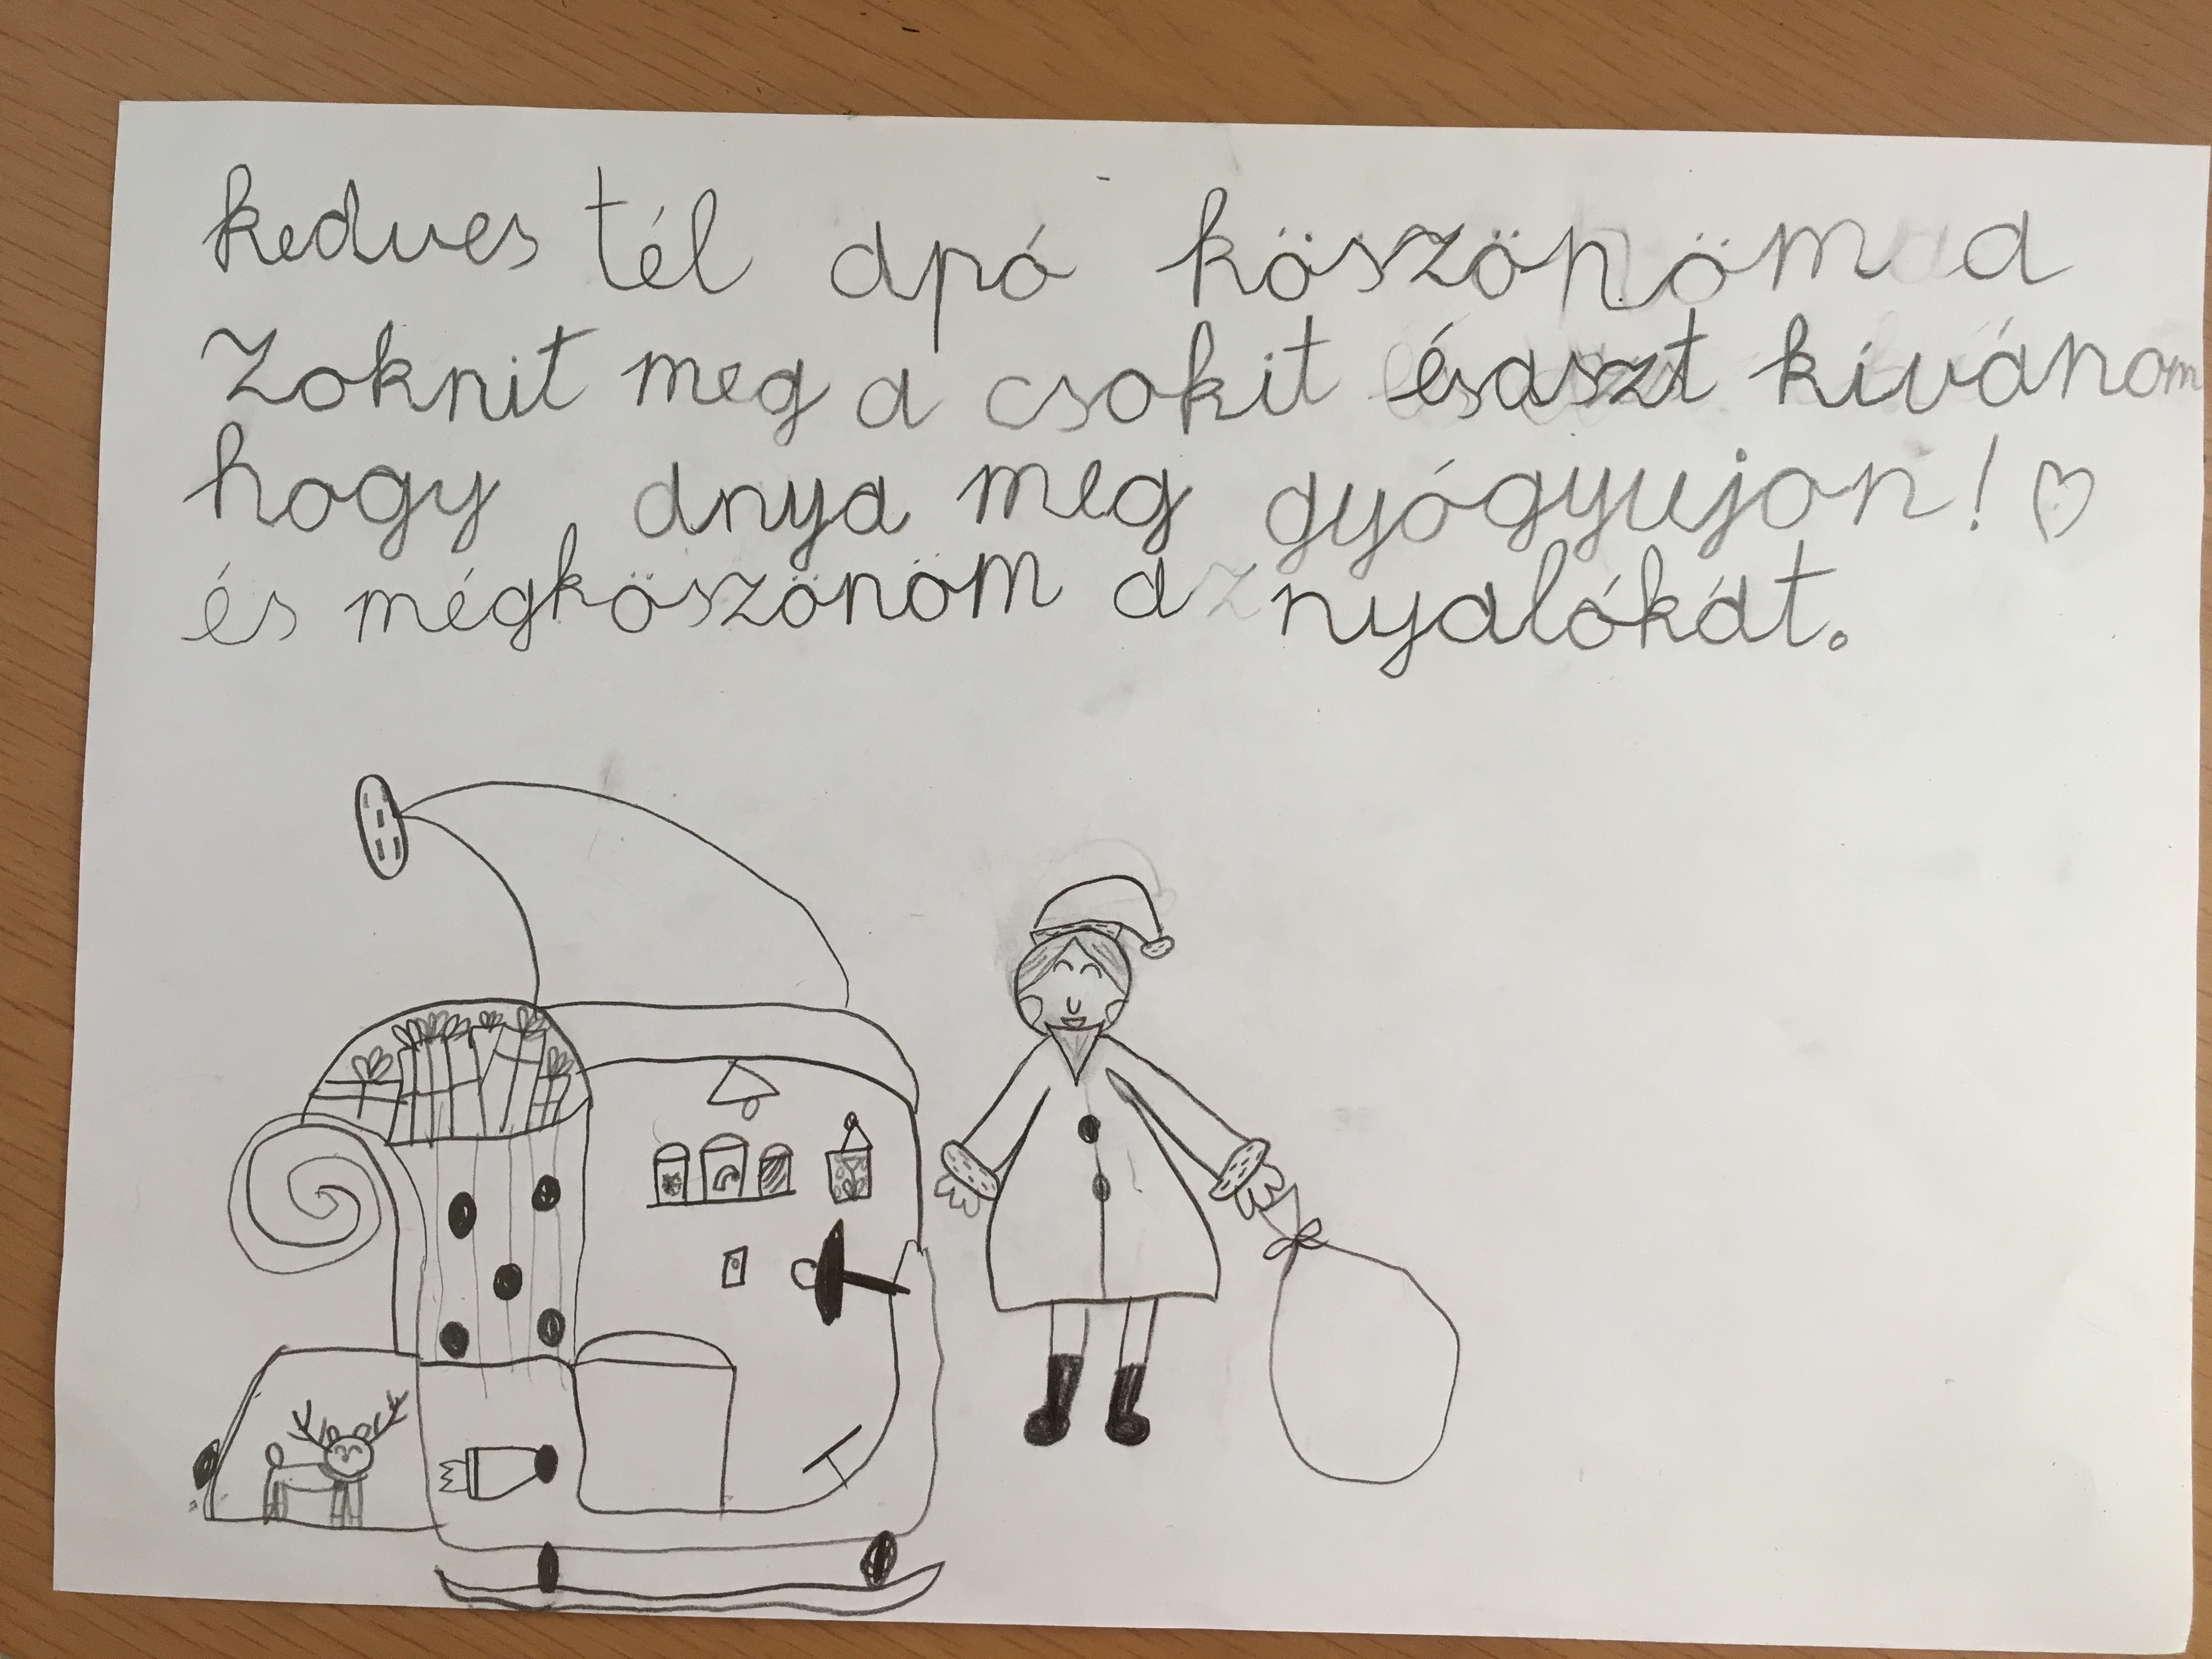 kedves tél apó köszönöm a
zoknit meg a csokit és aszt kívánom
hogy anya meg gyógyujon! ♡
és mégköszönöm a z nyalókát.